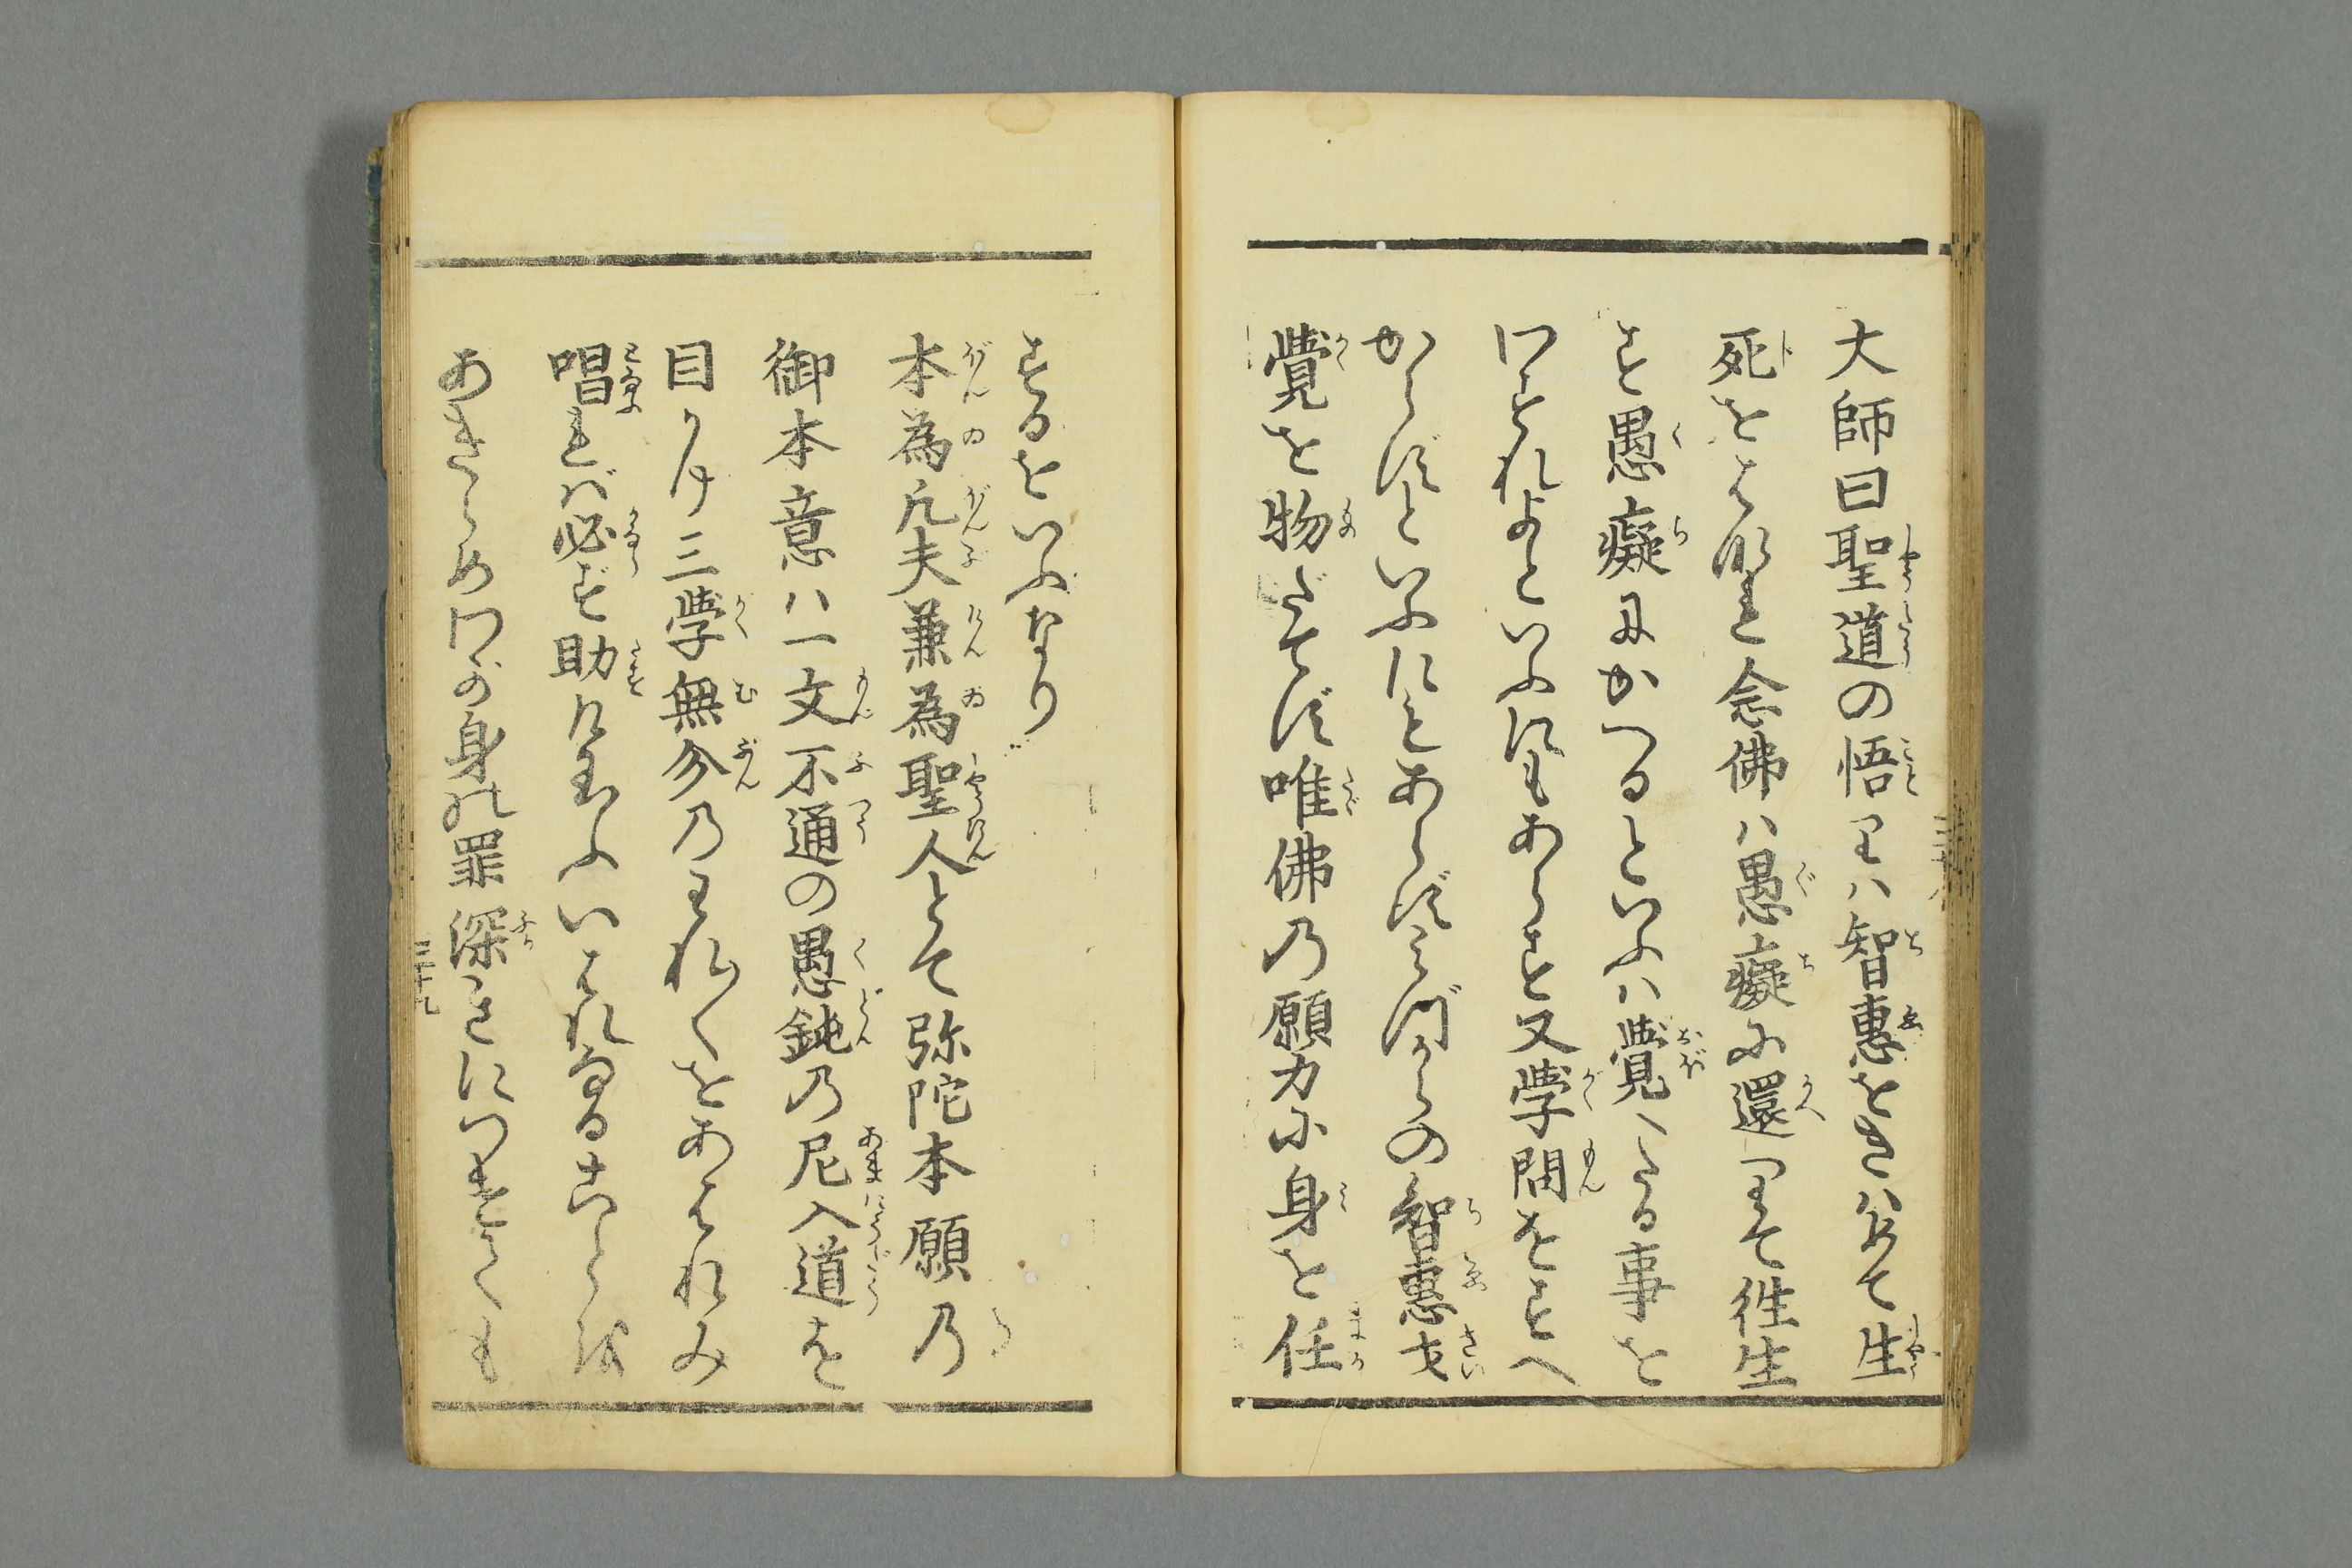 大師曰聖道の悟りハ智惠をきハめて生
死をはなれ念佛ハ愚癡に還りて往生
す愚癡にかへるといふハ覺へたる事を
わすれよといふにもあらす又学問をすへ
からずといふにもあらずみづからの智惠才
覺を物だてず唯佛乃願力に身を任
するをいふなり
本為凡夫兼為聖人とて弥陀本願乃
御本意ハ一文不通の愚鈍乃尼入道を
目かけ三学無分乃われ〳〵をあはれみ
唱れば必ず助けたまふいはれなることを
あきらめわが身の罪深きにつけても